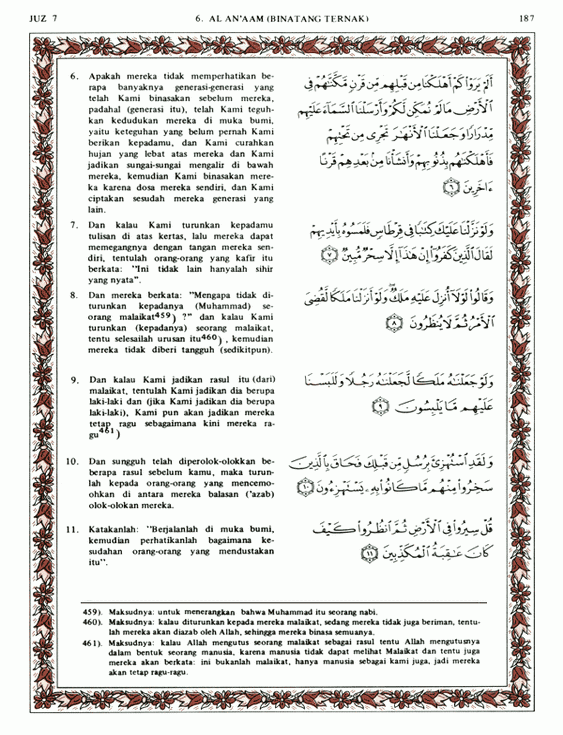 JUZ 7
6. AL AN'AAM (BINATANG TERNAK)
187
6. Apakah mereka tidak memperhatikan be-
rapa banyaknya generasi-generasi yang
telah Kami binasakan sebelum mereka,
padahal (generasi itu), telah Kami teguh-
kan kedudukan mereka di muka bumi,
yaitu keteguhan yang belum pernah Kami
berikan kepadamu, dan Kami curahkan
hujan yang lebat atas mereka dan Kami
jadikan sungai-sungai mengalir di bawah
mereka, kemudian Kami binasakan mere-
ka karena dosa mereka sendiri, dan Kami
ciptakan sesudah mereka generasi yang
lain.
أَلَمْ يَرَوْا۟ كَمْ أَهْلَكْنَا مِن قَبْلِهِم مِّن قَرْنٍ مَّكَّنَّٰهُمْ فِى
ٱلْأَرْضِ مَا لَمْ نُمَكِّن لَّكُمْ وَأَرْسَلْنَا ٱلسَّمَآءَ عَلَيْهِم
مِّدْرَارًا وَجَعَلْنَا ٱلْأَنْهَٰرَ تَجْرِى مِن تَحْتِهِمْ
فَأَهْلَكْنَٰهُم بِذُنُوبِهِمْ وَأَنشَأْنَا مِنۢ بَعْدِهِمْ قَرْنًا
ءَاخَرِينَ ٦
7. Dan kalau Kami turunkan kepadamu
tulisan di atas kertas, lalu mereka dapat
memegangnya dengan tangan mereka sen-
diri, tentulah orang-orang yang kafir itu
berkata: "Ini tidak lain hanyalah sihir
yang nyata".
وَلَوْ نَزَّلْنَا عَلَيْكَ كِتَٰبًا فِى قِرْطَاسٍ فَلَمَسُوهُ بِأَيْدِيهِمْ
لَقَالَ ٱلَّذِينَ كَفَرُوٓا۟ إِنْ هَٰذَآ إِلَّا سِحْرٌ مُّبِينٌ ٧
8. Dan mereka berkata: "Mengapa tidak di-
turunkan kepadanya (Muhammad) se-
orang malaikat459) ?" dan kalau Kami
turunkan (kepadanya) seorang malaikat,
tentu selesailah urusan itu460) , kemudian
mereka tidak diberi tangguh (sedikitpun).
وَقَالُوا۟ لَوْلَآ أُنزِلَ عَلَيْهِ مَلَكٌ وَلَوْ أَنزَلْنَا مَلَكًا لَّقُضِىَ
ٱلْأَمْرُ ثُمَّ لَا يُنظَرُونَ ٨
9. Dan kalau Kami jadikan rasul itu (dari)
malaikat, tentulah Kami jadikan dia berupa
laki-laki dan (jika Kami jadikan dia berupa
laki-laki), Kami pun akan jadikan mereka
tetap ragu sebagaimana kini mereka ra-
gu461)
وَلَوْ جَعَلْنَٰهُ مَلَكًا لَّجَعَلْنَٰهُ رَجُلًا وَلَلَبَسْنَا
عَلَيْهِم مَّا يَلْبِسُونَ ٩
10. Dan sungguh telah diperolok-olokkan be-
berapa rasul sebelum kamu, maka turun-
lah kepada orang-orang yang mencemo-
ohkan di antara mereka balasan ('azab)
olok-olokan mereka.
وَلَقَدِ ٱسْتُهْزِئَ بِرُسُلٍ مِّن قَبْلِكَ فَحَاقَ بِٱلَّذِينَ
سَخِرُوا۟ مِنْهُم مَّا كَانُوا۟ بِهِۦ يَسْتَهْزِءُونَ ١٠
11. Katakanlah: "Berjalanlah di muka bumi,
kemudian perhatikanlah bagaimana ke-
sudahan orang-orang yang mendustakan
itu".
قُلْ سِيرُوا۟ فِى ٱلْأَرْضِ ثُمَّ ٱنظُرُوا۟ كَيْفَ
كَانَ عَٰقِبَةُ ٱلْمُكَذِّبِينَ ١١
459). Maksudnya: untuk menerangkan bahwa Muhammad itu seorang nabi.
460). Maksudnya: kalau diturunkan kepada mereka malaikat, sedang mereka tidak juga beriman, tentu-
lah mereka akan diazab oleh Allah, sehingga mereka binasa semuanya.
461). Maksudnya: kalau Allah mengutus seorang malaikat sebagai rasul tentu Allah mengutusnya
dalam bentuk seorang manusia, karena manusia tidak dapat melihat Malaikat dan tentu juga
mereka akan berkata: ini bukanlah malaikat, hanya manusia sebagai kami juga, jadi mereka
akan tetap ragu-ragu.